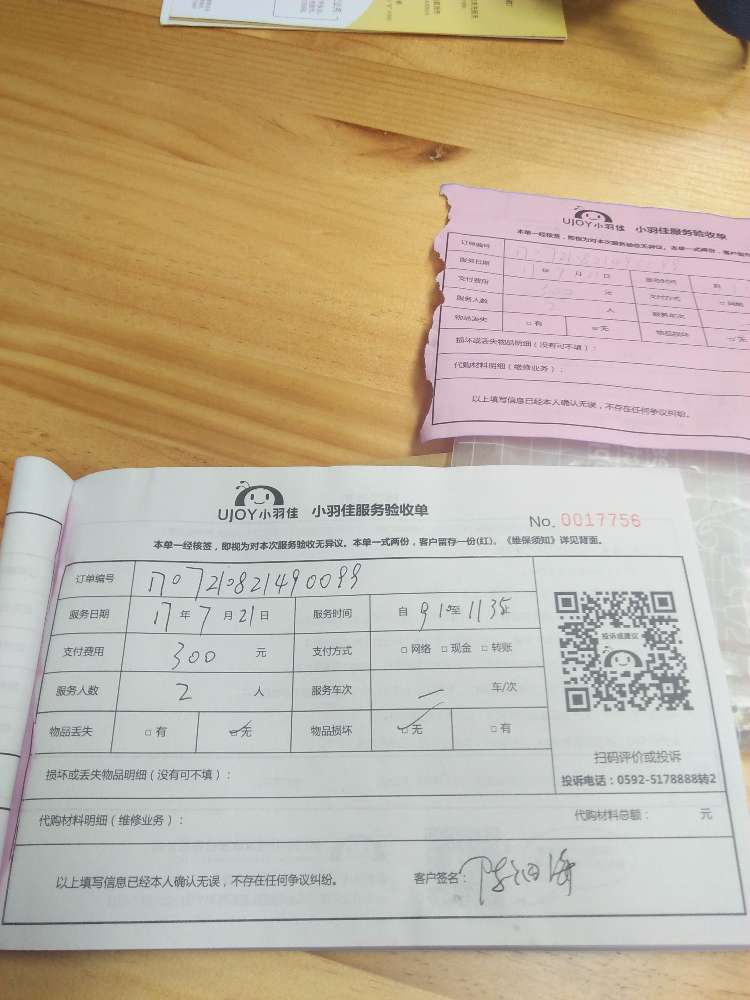 UJOY小羽佳 小羽佳服务验收单
本单一经核签，即视为对本次服务验收无异议。本单一式两份，客户
订单编号
服务日期 17 年 7 月 日 服务时间 自
支付费用 300 元 支付方式 □ 网络
服务人数 2 人 服务车次
物品丢失 □ 有 □ 无 物品损坏 □ 无
损坏或丢失物品明细（没有可不填）：
代购材料明细（维修业务）：
以上填写信息已经本人确认无误，不存在任何争议纠纷。
UJOY小羽佳 小羽佳服务验收单
No. 0017756
本单一经核签，即视为对本次服务验收无异议。本单一式两份，客户留存一份(红)。《维保须知》详见背面。
订单编号
服务日期 17 年 7 月 21 日 服务时间 自 9 10 至 11 35 止
支付费用 300 元 支付方式 □ 网络 □ 现金 □ 转账
服务人数 2 人 服务车次 — 车/次
物品丢失 □ 有 □ 无 物品损坏 □ 无 □ 有
投诉或建议
扫码评价或投诉
投诉电话：0592-5178888转2
损坏或丢失物品明细（没有可不填）：
代购材料明细（维修业务）： 代购材料总额： 元
以上填写信息已经本人确认无误，不存在任何争议纠纷。 客户签名：